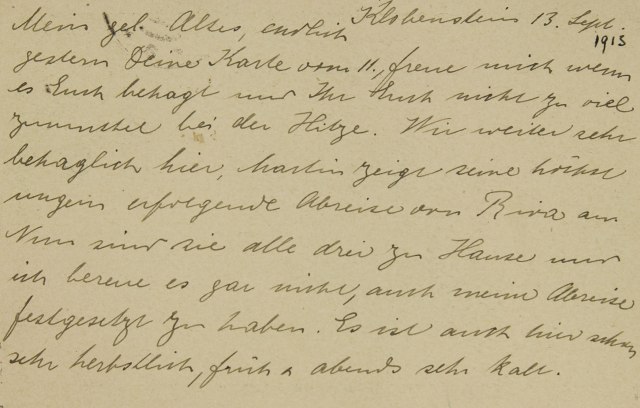 Klobenstein 13. Sept.
1913
Mein gel. Altes, endlich
gestern Deine Karte vom 11., freue mich wenn
es Euch behagt und Ihr Euch nicht zu viel
zumuthet bei der Hitze. Wir weiter sehr
behaglich hier, Martin zeigt seine höchst
ungern erfolgende Abreise von Riva an
Nun sind sie alle drei zu Hause und
ich bereue es gar nicht, auch meine Abreise
festgesetzt zu haben. Es ist auch hier schon
sehr herbstlich, früh u abends sehr kalt.